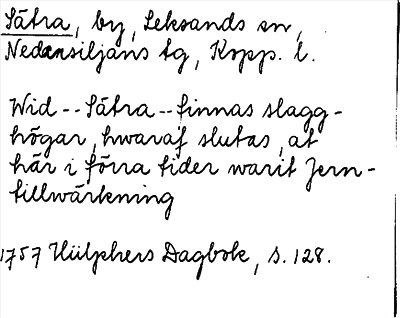 Sätra, by, Leksands sn,
Nedansiljans tg, Kopp. l.
Wid -- Sätra -- finnas slagg-
högar, hwaraf slutas, at
här i förra tider warit Jern-
tillwärkning
1757 Hülphers Dagbok, s. 128.